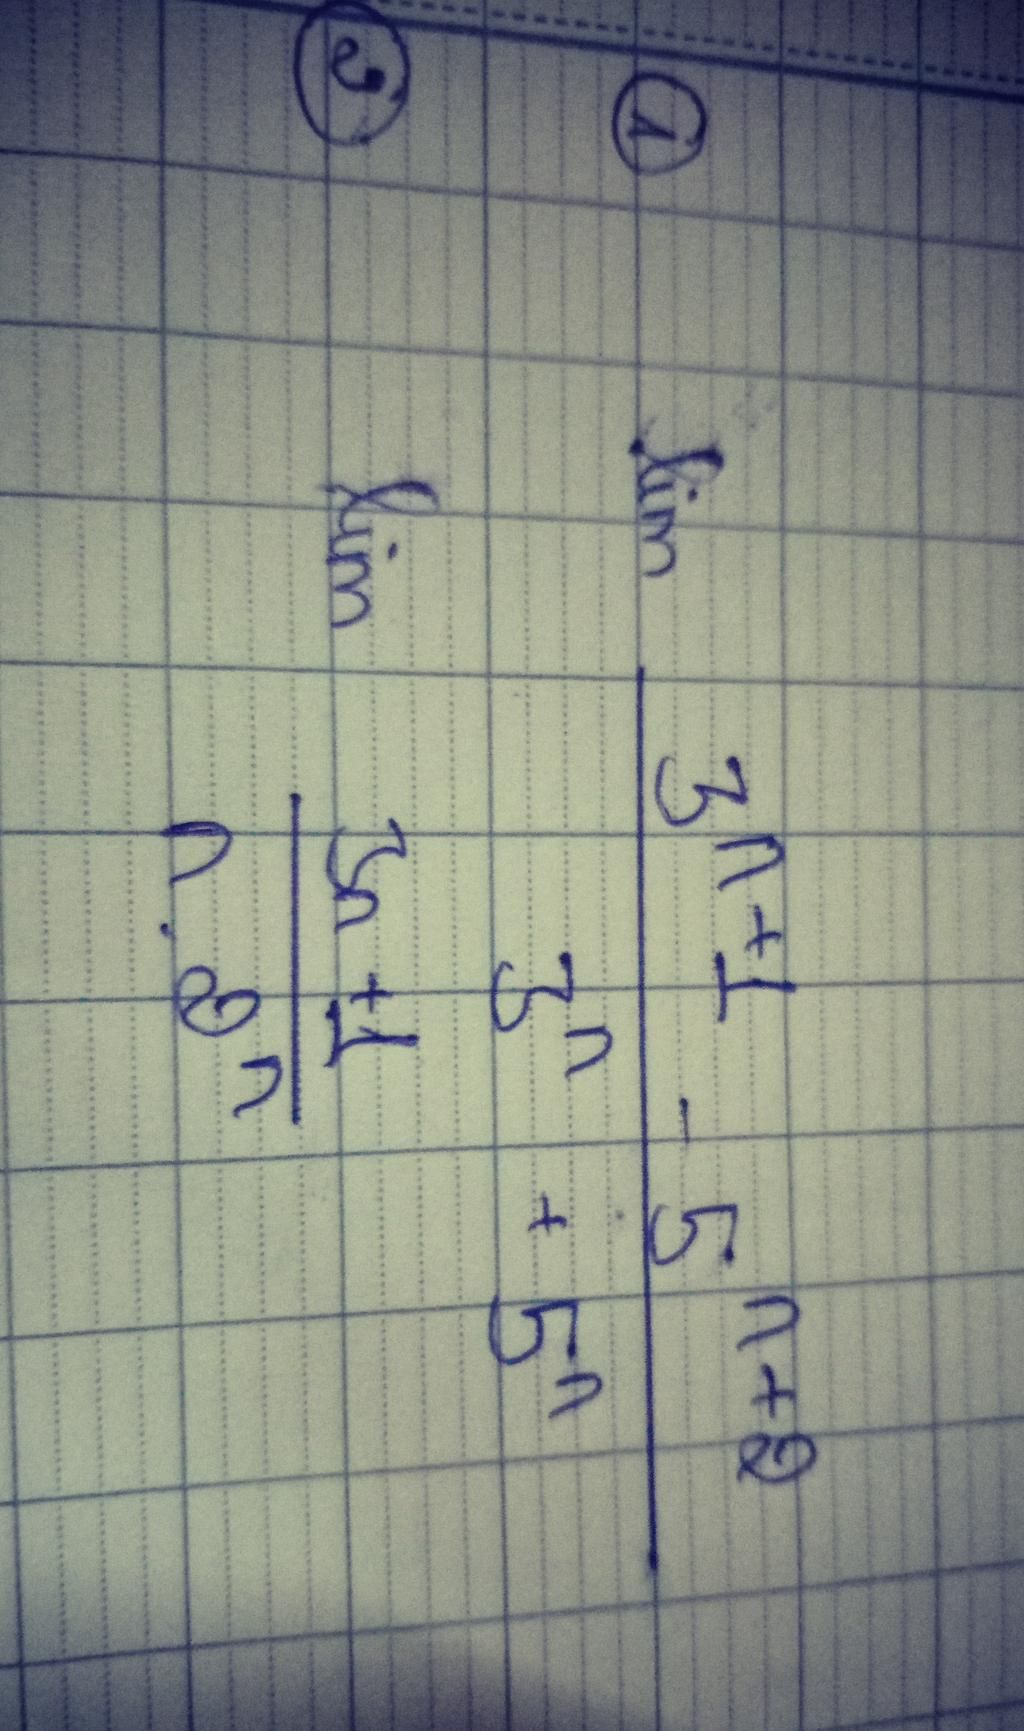 ① lim (3^{n+1} - 5^{n+2}) / (3^n + 5^n)
② lim (3n + 1) / (n . 2^n)